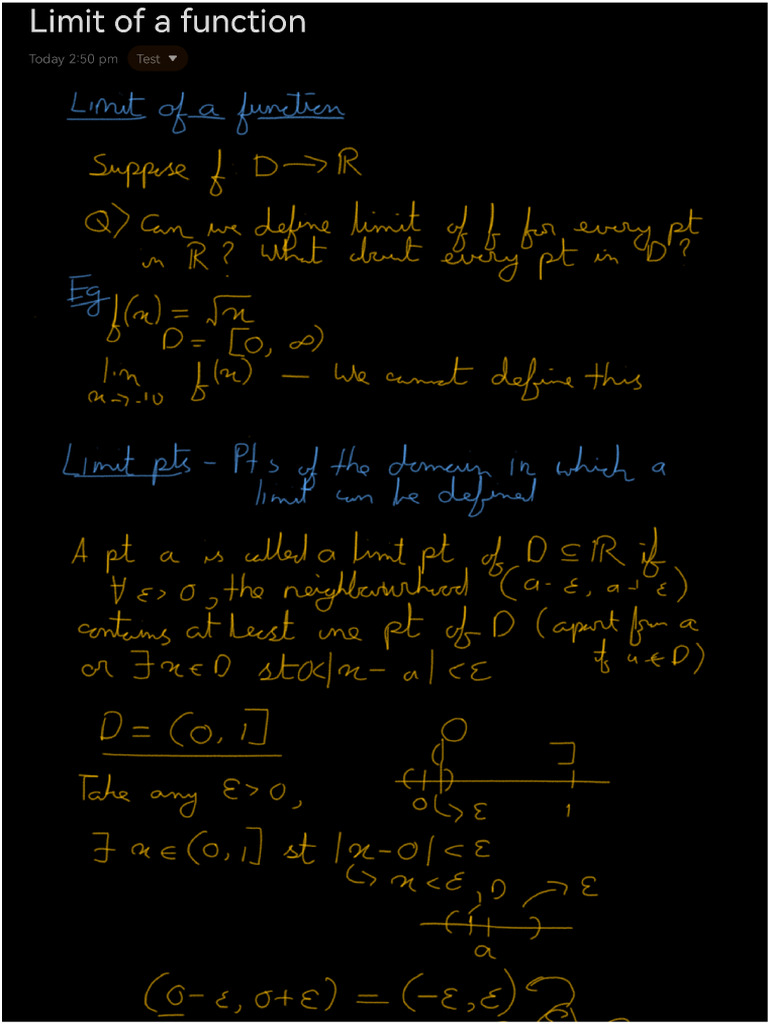 Limit of a function
Today 2:50 pm Test
Limit of a function
Suppose f: D → ℝ
Q) Can we define limit of f for every pt
in ℝ? What about every pt in D?
Eg f(x) = √x
D = [0, ∞)
lim f(x) — We cannot define this
x→-10
Limit pts - Pts of the domain in which a
limit can be defined
A pt a is called a limit pt of D ⊆ ℝ if
∀ ε > 0, the neighbourhood (a-ε, a+ε)
contains at least one pt of D (apart from a
if a ∈ D)
or ∃ x ∈ D st 0<|x-a| < ε
D = (0, 1]
Take any ε > 0,
0 ↳ ε 1
∃ x ∈ (0, 1] st |x-0| < ε
↳ x < ε
D → ε
a
(0-ε, 0+ε) = (-ε, ε)